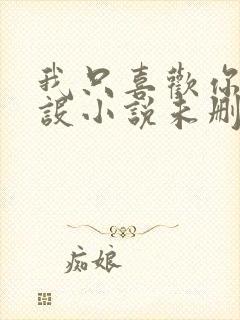 我只喜歡你
設小說未刪
痴娘